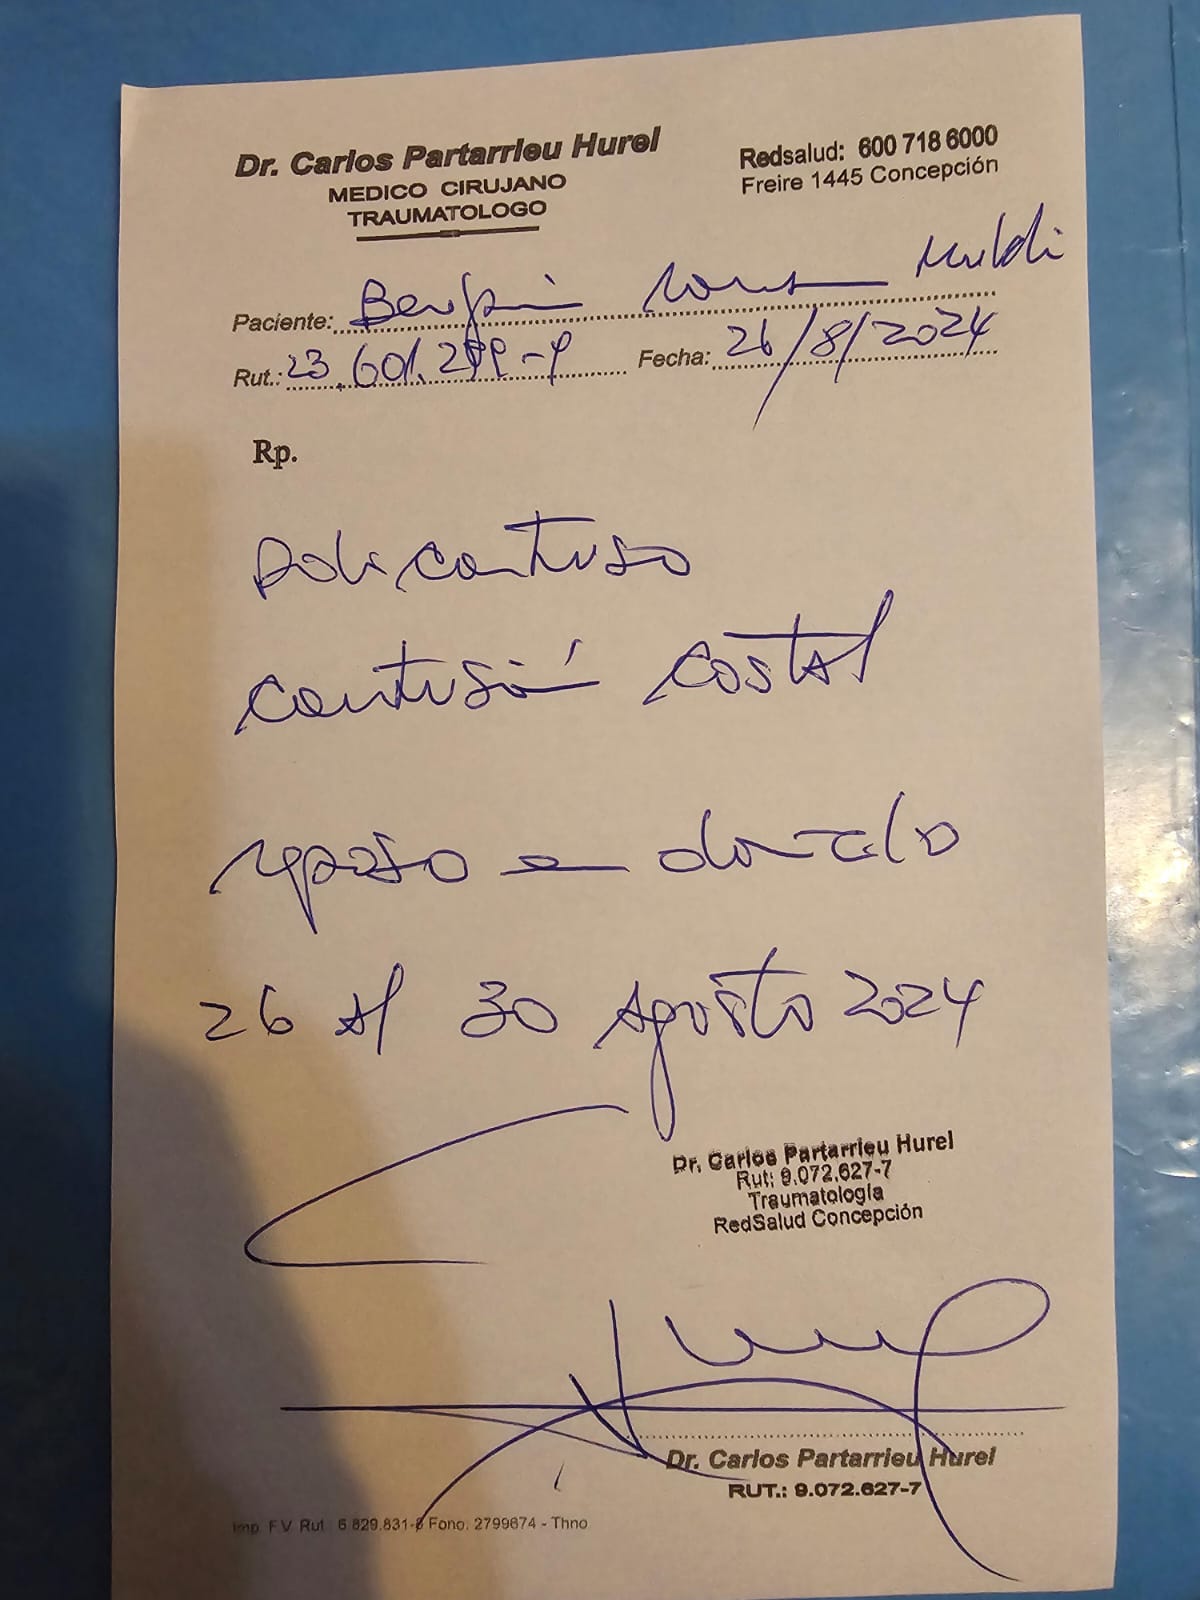 Dr. Carlos Partarrieu Hurel
MEDICO CIRUJANO
TRAUMATOLOGO
Redsalud: 600 718 6000
Freire 1445 Concepción
Paciente:
Rut.: Fecha: 26/8/2024
Rp.
Policontuso
contusión costal
reposo en
26 al 30 Agosto 2024
Dr. Carlos Partarrieu Hurel
Rut: 9.072.627-7
Traumatología
RedSalud Concepción
Dr. Carlos Partarrieu Hurel
RUT.: 9.072.627-7
Imp. F.V. Rut.: 6.829.831-6 Fono: 2799674 - Thno